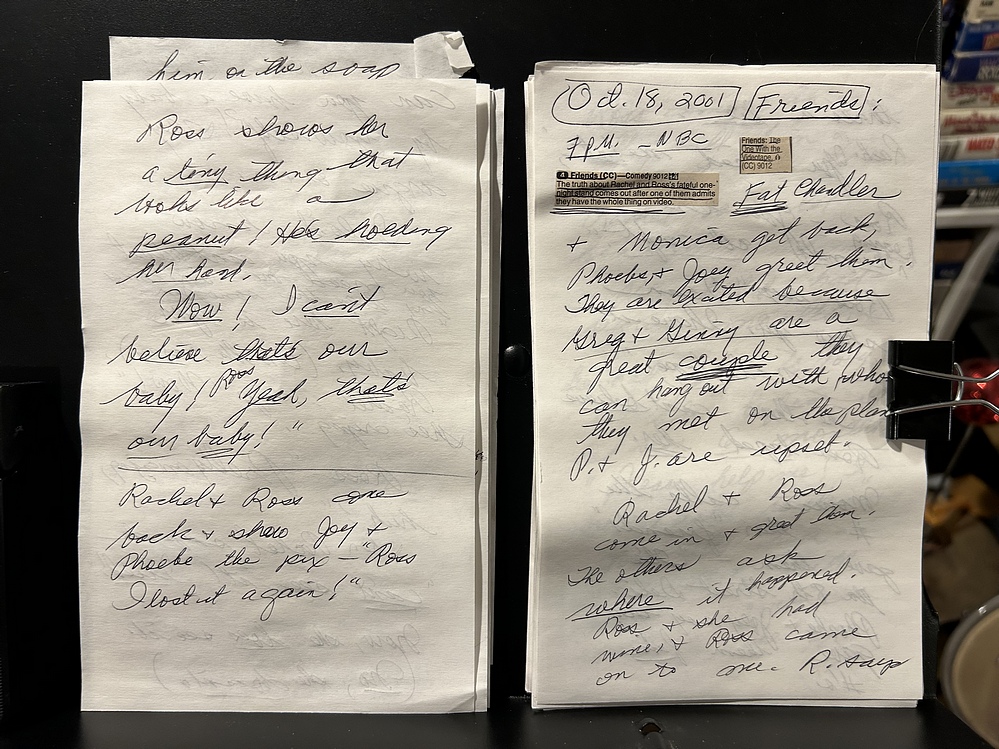 him on the soap
Ross shows her
a tiny thing that
looks like a
peanut! He's holding
her hand.
Wow! I can't
believe that's our
baby! Ross Yeah, that's
our baby!"
Rachel + Ross come
back + show Joey +
Phoebe the pix - "Ross
I lost it again!"
Oct. 18, 2001 Friends:
7 P.M. - NBC
Friends: The
One With the
Videotape.
(CC) 9012
4 Friends (CC)—Comedy 9012
The truth about Rachel and Ross's fateful one-
night stand comes out after one of them admits
they have the whole thing on video.
Fat Chandler
+ Monica get back,
Phoebe + Joey greet them.
They are excited because
Greg + Ginny are a
great couple they
can hang out with who
they met on the plan
P. + J. are upset.
Rachel + Ross
come in + greet them.
The others ask
where it happened.
Ross + she had
wine, + Ross came
on to me. R. says